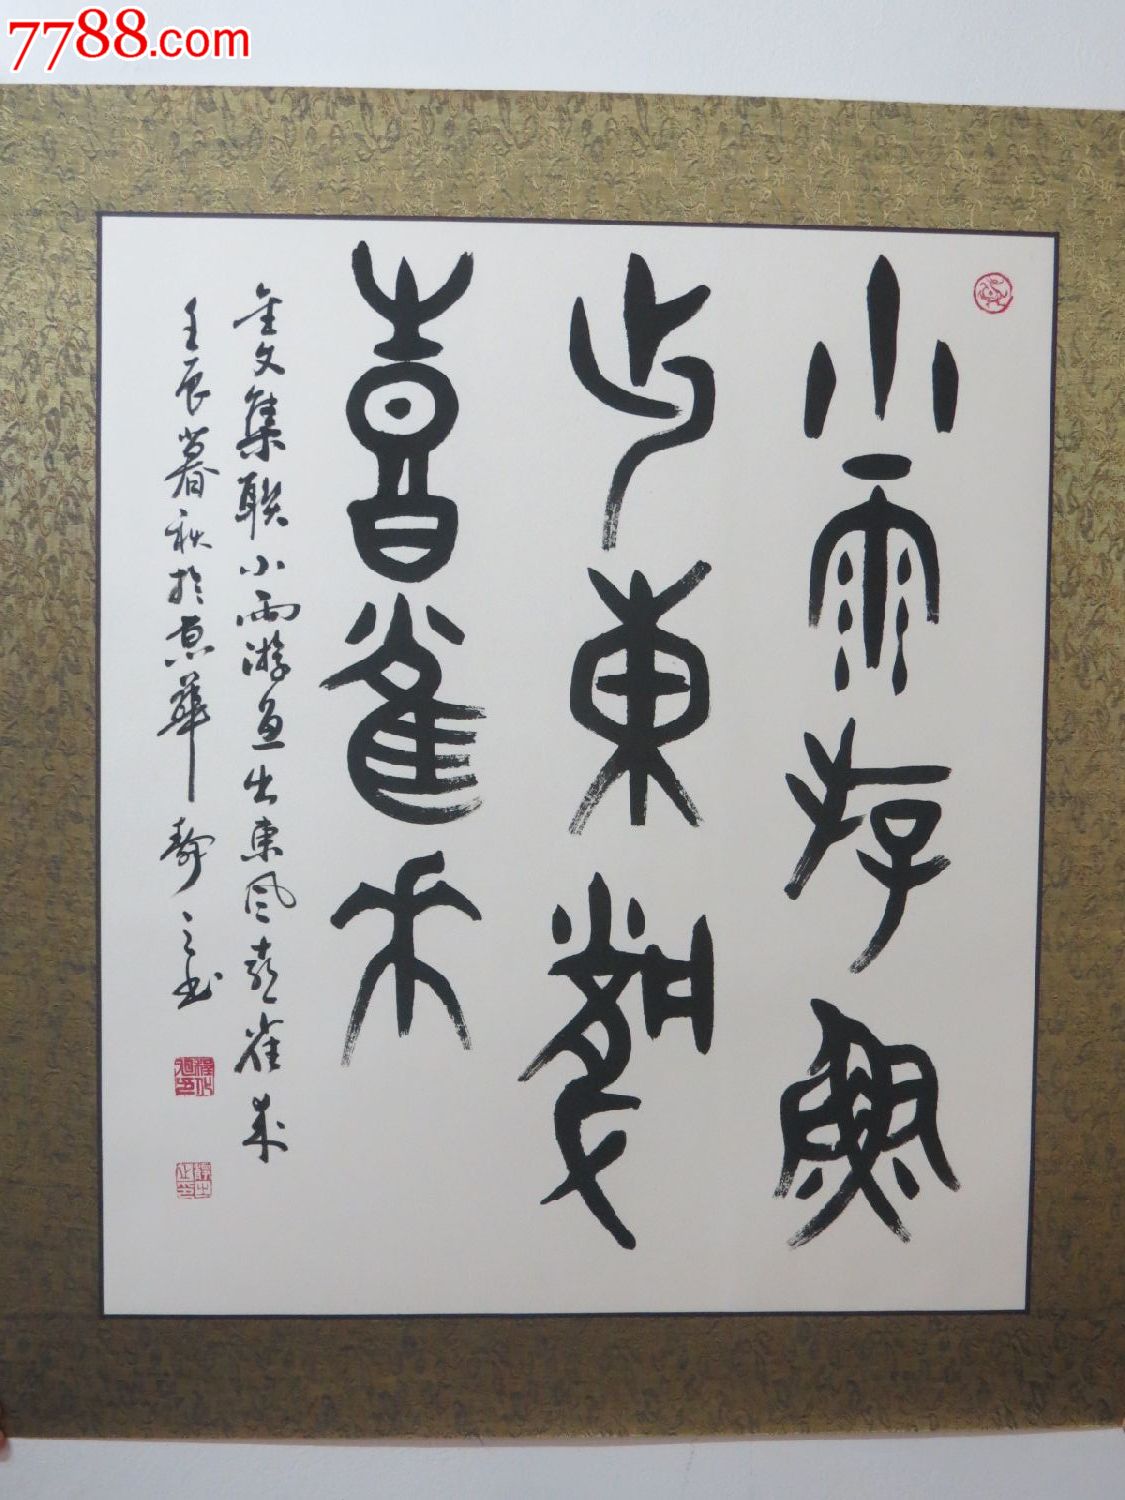 7788.com
小雨游魚
出東風
喜雀來
金文集聯小雨游魚出東風喜雀來
壬辰暮秋於京華靜之書